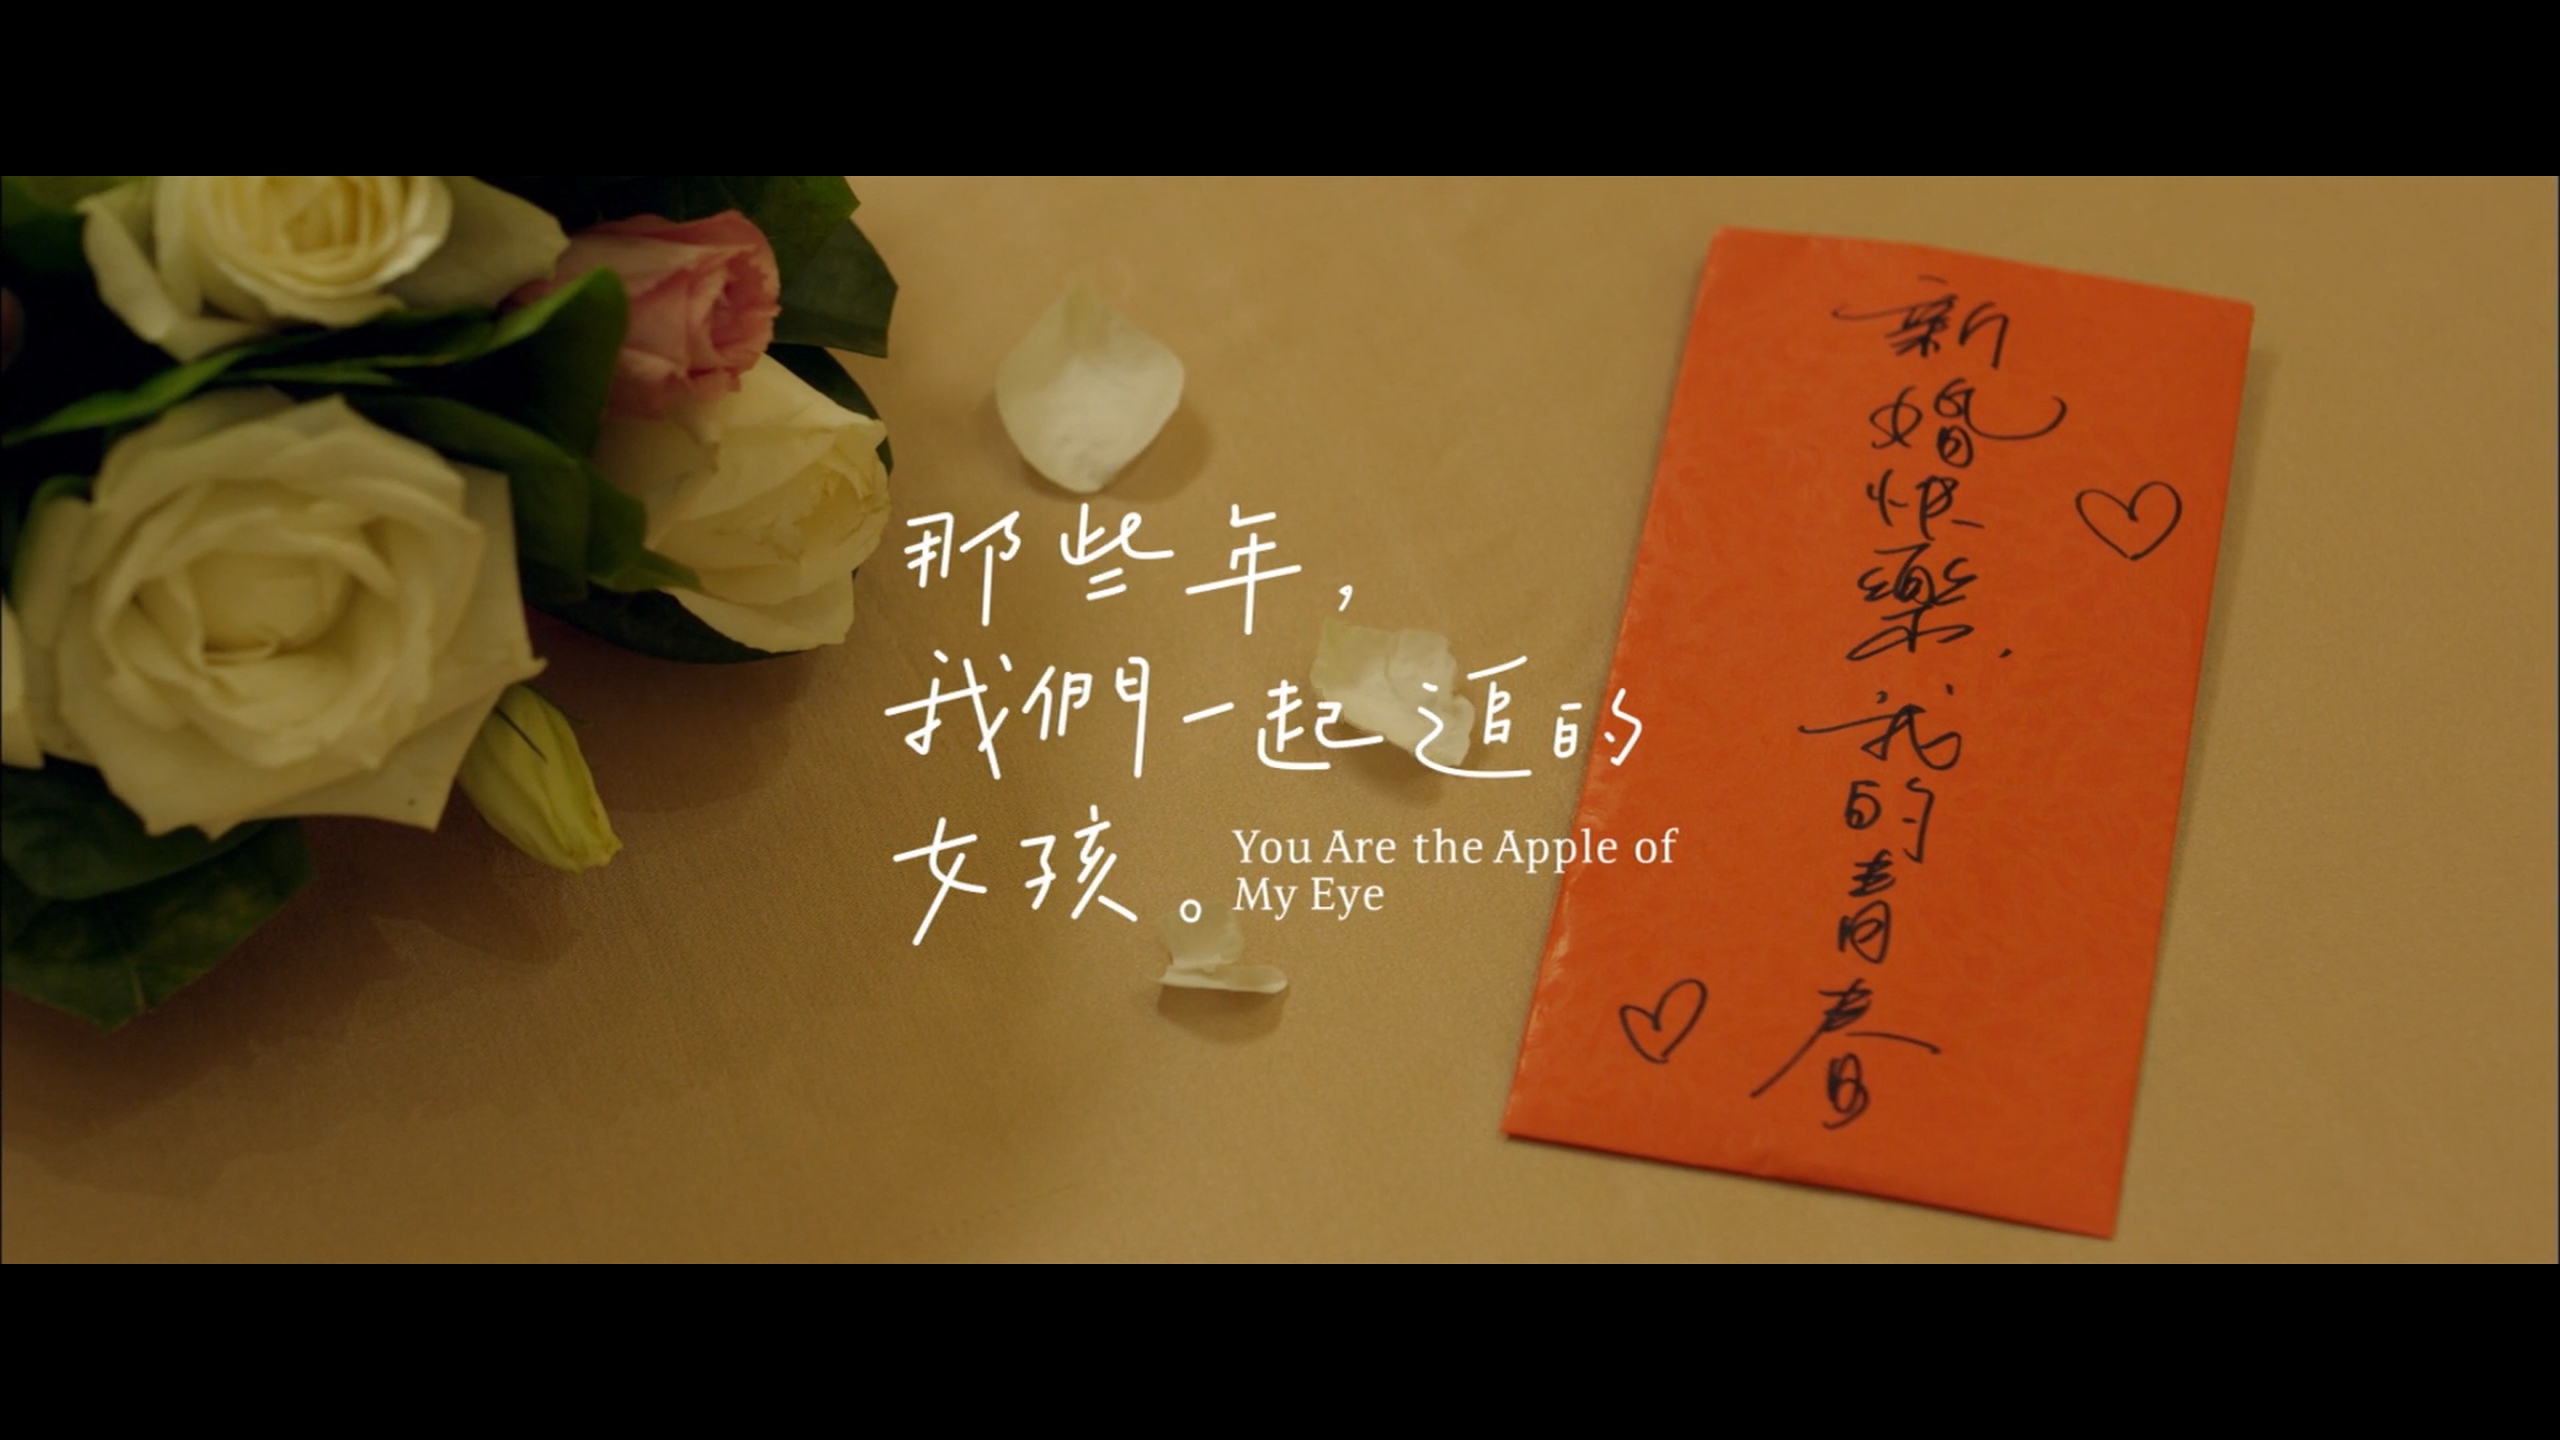 那些年，
我們一起追的
女孩。
You Are the Apple of
My Eye
新婚快樂，我的青春